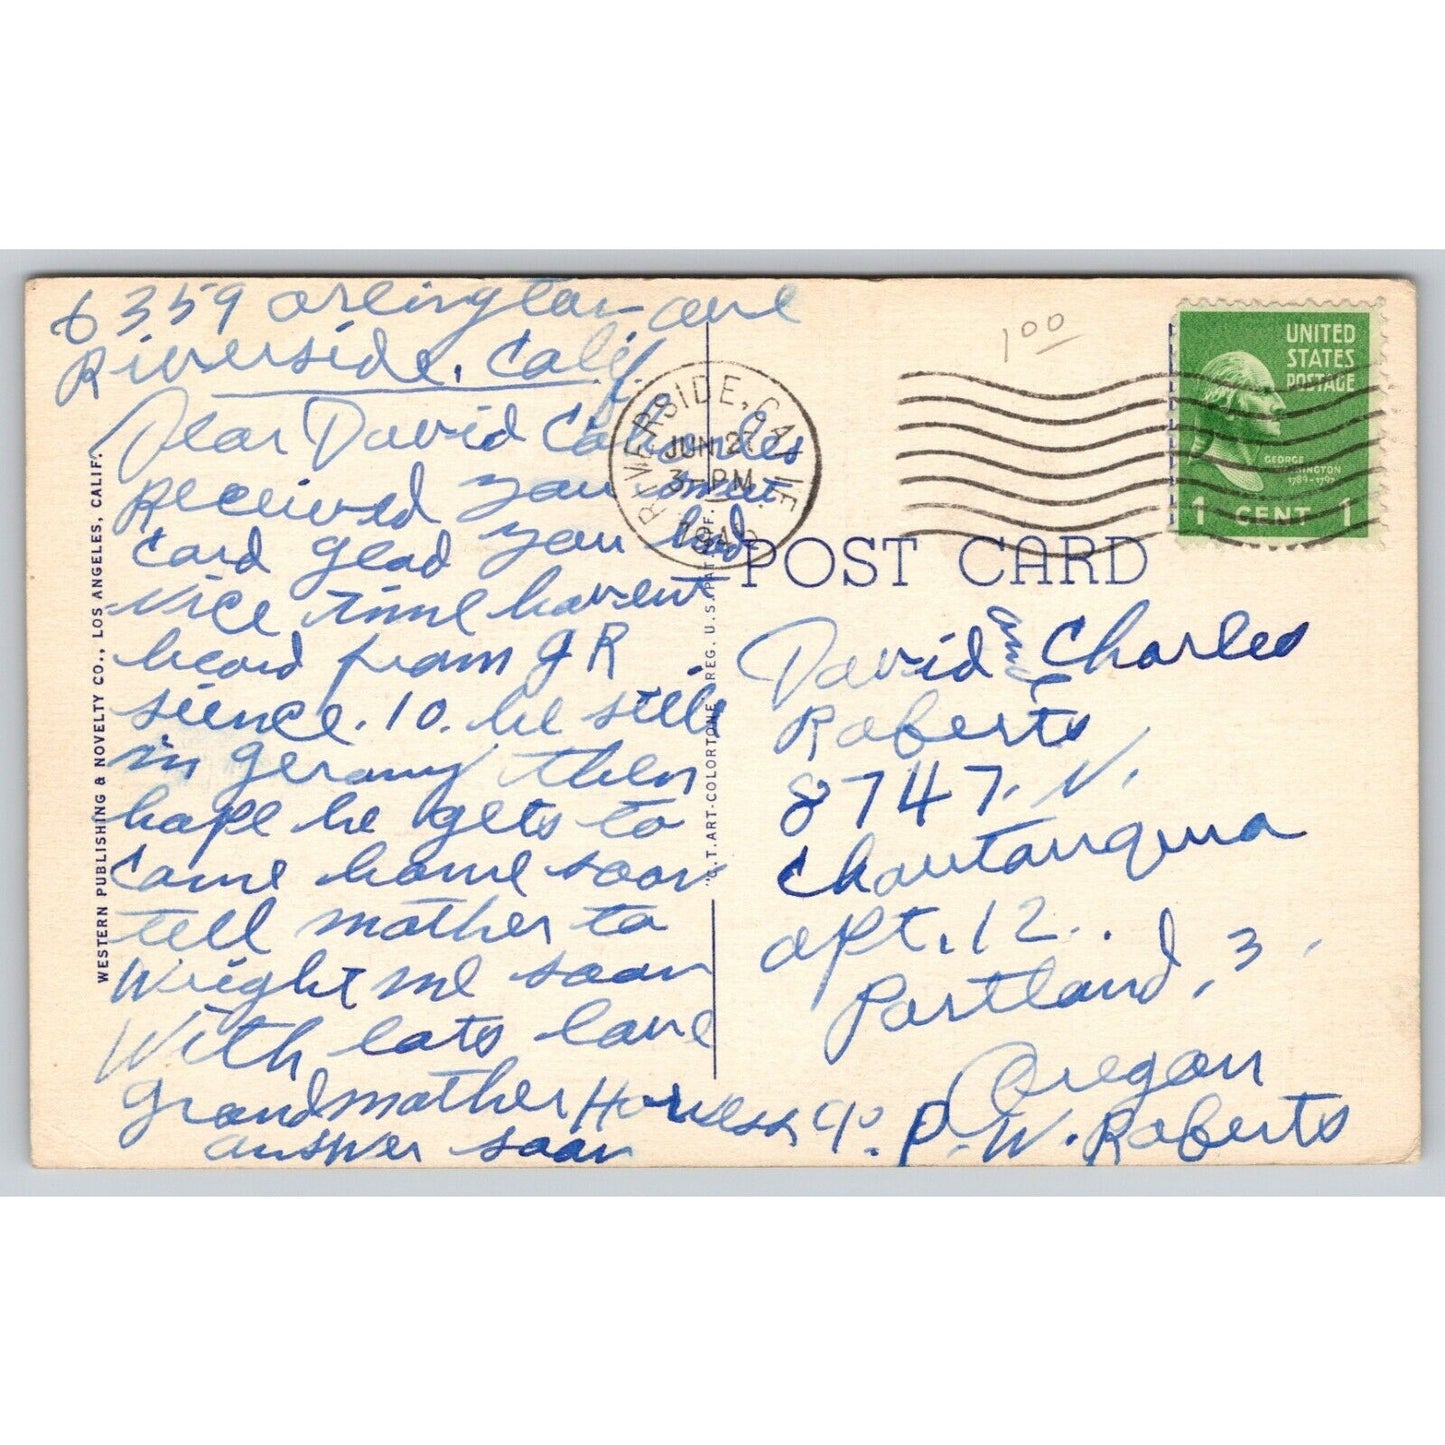 6359 arlington ave
Riverside, Calif.
Dear David Charles
Received your sweet
card glad you had
nice time havent
heard from J R
sience. 10. he still
in geramy then
hope he gets to
come home soon
tell mother to
wright me soon
With lots love
grandmother Harness
answer soon
WESTERN PUBLISHING & NOVELTY CO., LOS ANGELES, CALIF.
"C.T. ART-COLORTONE" REG. U.S. PAT. OF.
RIVERSIDE, CALIF.
JUN 27
3 - PM
194
1 00
UNITED
STATES
POSTAGE
GEORGE
WASHINGTON
1789-1797
1 CENT 1
POST CARD
David Charles
Roberts
8747. N.
Chautauqua
apt. 12.
Portland, 3,
Oregon
c/o. P. W. Roberts